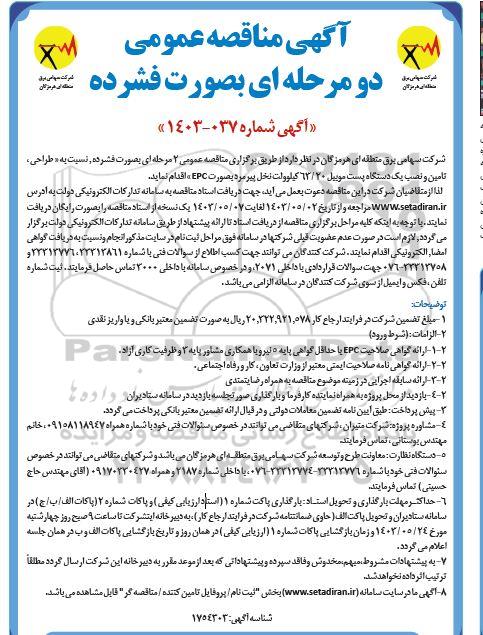 آگهی مناقصه عمومی
دو مرحله ای بصورت فشرده
شرکت سهامی برق
منطقه ای هرمزگان
شرکت سهامی برق
منطقه ای هرمزگان
«آگهی شماره ۰۳۷-۱۴۰۳»
شرکت سهامی برق منطقه ای هرمزگان در نظر دارد از طریق برگزاری مناقصه عمومی ۲ مرحله ای بصورت فشرده، نسبت به «طراحی،
تامین و نصب یک دستگاه پست موبیل ۶۳/۲۰ کیلوولت نخل پیرمرد بصورت EPC» اقدام نماید.
لذا از متقاضیان شرکت در این مناقصه دعوت بعمل می آید، جهت دریافت اسناد مناقصه به سامانه تدارکات الکترونیکی دولت به آدرس
WWW.setadiran.ir مراجعه و از تاریخ ۱۴۰۳/۰۵/۰۲ لغایت ۱۴۰۳/۰۵/۰۷ یک نسخه از اسناد مناقصه را بصورت رایگان دریافت
نمایند. با توجه به اینکه کلیه مراحل برگزاری مناقصه از دریافت اسناد تا ارائه پیشنهاد از طریق سامانه تدارکات الکترونیکی دولت برگزار
می گردد، لازم است در صورت عدم عضویت قبلی شرکتها در سامانه فوق مراحل ثبت نام در سایت مذکور انجام و نسبت به دریافت گواهی
امضا الکترونیکی اقدام نمایند. شرکت کنندگان می توانند جهت کسب اطلاع از سوالات فنی با شماره ۳۳۳۱۳۸۶۱، ۳۳۳۱۳۷۷۶ و
۳۳۳۱۳۷۵۸-۰۷۶ جهت سوالات قراردادی با داخلی ۲۰۷۱، و در خصوص سامانه با داخلی ۳۰۰۰ تماس حاصل فرمایند. ثبت شماره
تلفن، فکس و ایمیل از سوی شرکت کنندگان در سامانه الزامی می باشد.
توضیحات:
۱-مبلغ تضمین شرکت در فرایند ارجاع کار ۲۰,۲۲۲,۹۲۱,۵۷۸ ریال به صورت تضمین معتبر بانکی و یا واریز نقدی
۲-الزامات: (شرط ورود)
۱-۲-ارائه گواهی صلاحیت EPC با حداقل گواهی پایه ۵ نیرو یا همکاری مشاور پایه ۳ و ظرفیت کاری آزاد.
۲-۲-ارائه گواهی نامه صلاحیت ایمنی معتبر از وزارت تعاون، کار و رفاه اجتماعی.
۳-۲-ارائه سابقه اجرایی در زمینه موضوع مناقصه به همراه رضایتمندی
۴-۲-بازدید از محل پروژه به همراه نماینده کارفرما و بارگذاری صورتجلسه بازدید در سامانه ستادیران
۳-پیش پرداخت: طبق آیین نامه تضمین معاملات دولتی و در قبال ارائه تضمین معتبر بانکی پرداخت می گردد.
۴-مشاور پروژه: شرکت متیران، شرکتهای متقاضی می توانند در خصوص سئوالات فنی خود با شماره همراه ۰۹۱۵۸۱۱۸۹۴۷، خانم
مهندس بوستانی، تماس فرمایند.
۵-دستگاه نظارت: معاونت طرح و توسعه شرکت سهامی برق منطقه ای هرمزگان می باشد و شرکتهای متقاضی می توانند در خصوص
سئوالات فنی خود با شماره ۳۳۳۱۳۷۷۶-۳۳۳۱۳۷۷۴-۰۷۶، با داخلی شماره ۲۱۸۷ و همراه ۰۹۱۷۰۲۳۰۴۲۷ (آقای مهندس حاج
حسینی) تماس فرمایند.
۶-حداکثر مهلت بارگذاری و تحویل اسناد: بارگذاری پاکت شماره ۱ (استعلام ارزیابی کیفی) و پاکات شماره ۲ (پاکات الف/ب/ج) در
سامانه ستادیران و تحویل پاکت الف (حاوی ضمانتنامه شرکت در فرایند ارجاع کار)، به دبیرخانه این شرکت تا ساعت ۹ صبح روز چهارشنبه
مورخ ۱۴۰۳/۰۵/۲۴ و زمان بازگشایی پاکات شماره ۱ (ارزیابی کیفی) در همان روز و تاریخ بازگشایی پاکات الف و ب در همان جلسه
اعلام می گردد.
۷-به پیشنهادات مشروط، مبهم، مخدوش و فاقد سپرده و پیشنهاداتی که بعد از موعد مقرر به دبیرخانه این شرکت ارسال گردد مطلقاً
ترتیب اثر داده نخواهد شد.
۸-آگهی ما در سایت سامانه (www.setadiran.ir) بخش "ثبت نام/ پروفایل تامین کننده / مناقصه گر" قابل مشاهده می باشد.
شناسه آگهی: ۱۷۵۴۳۰۳